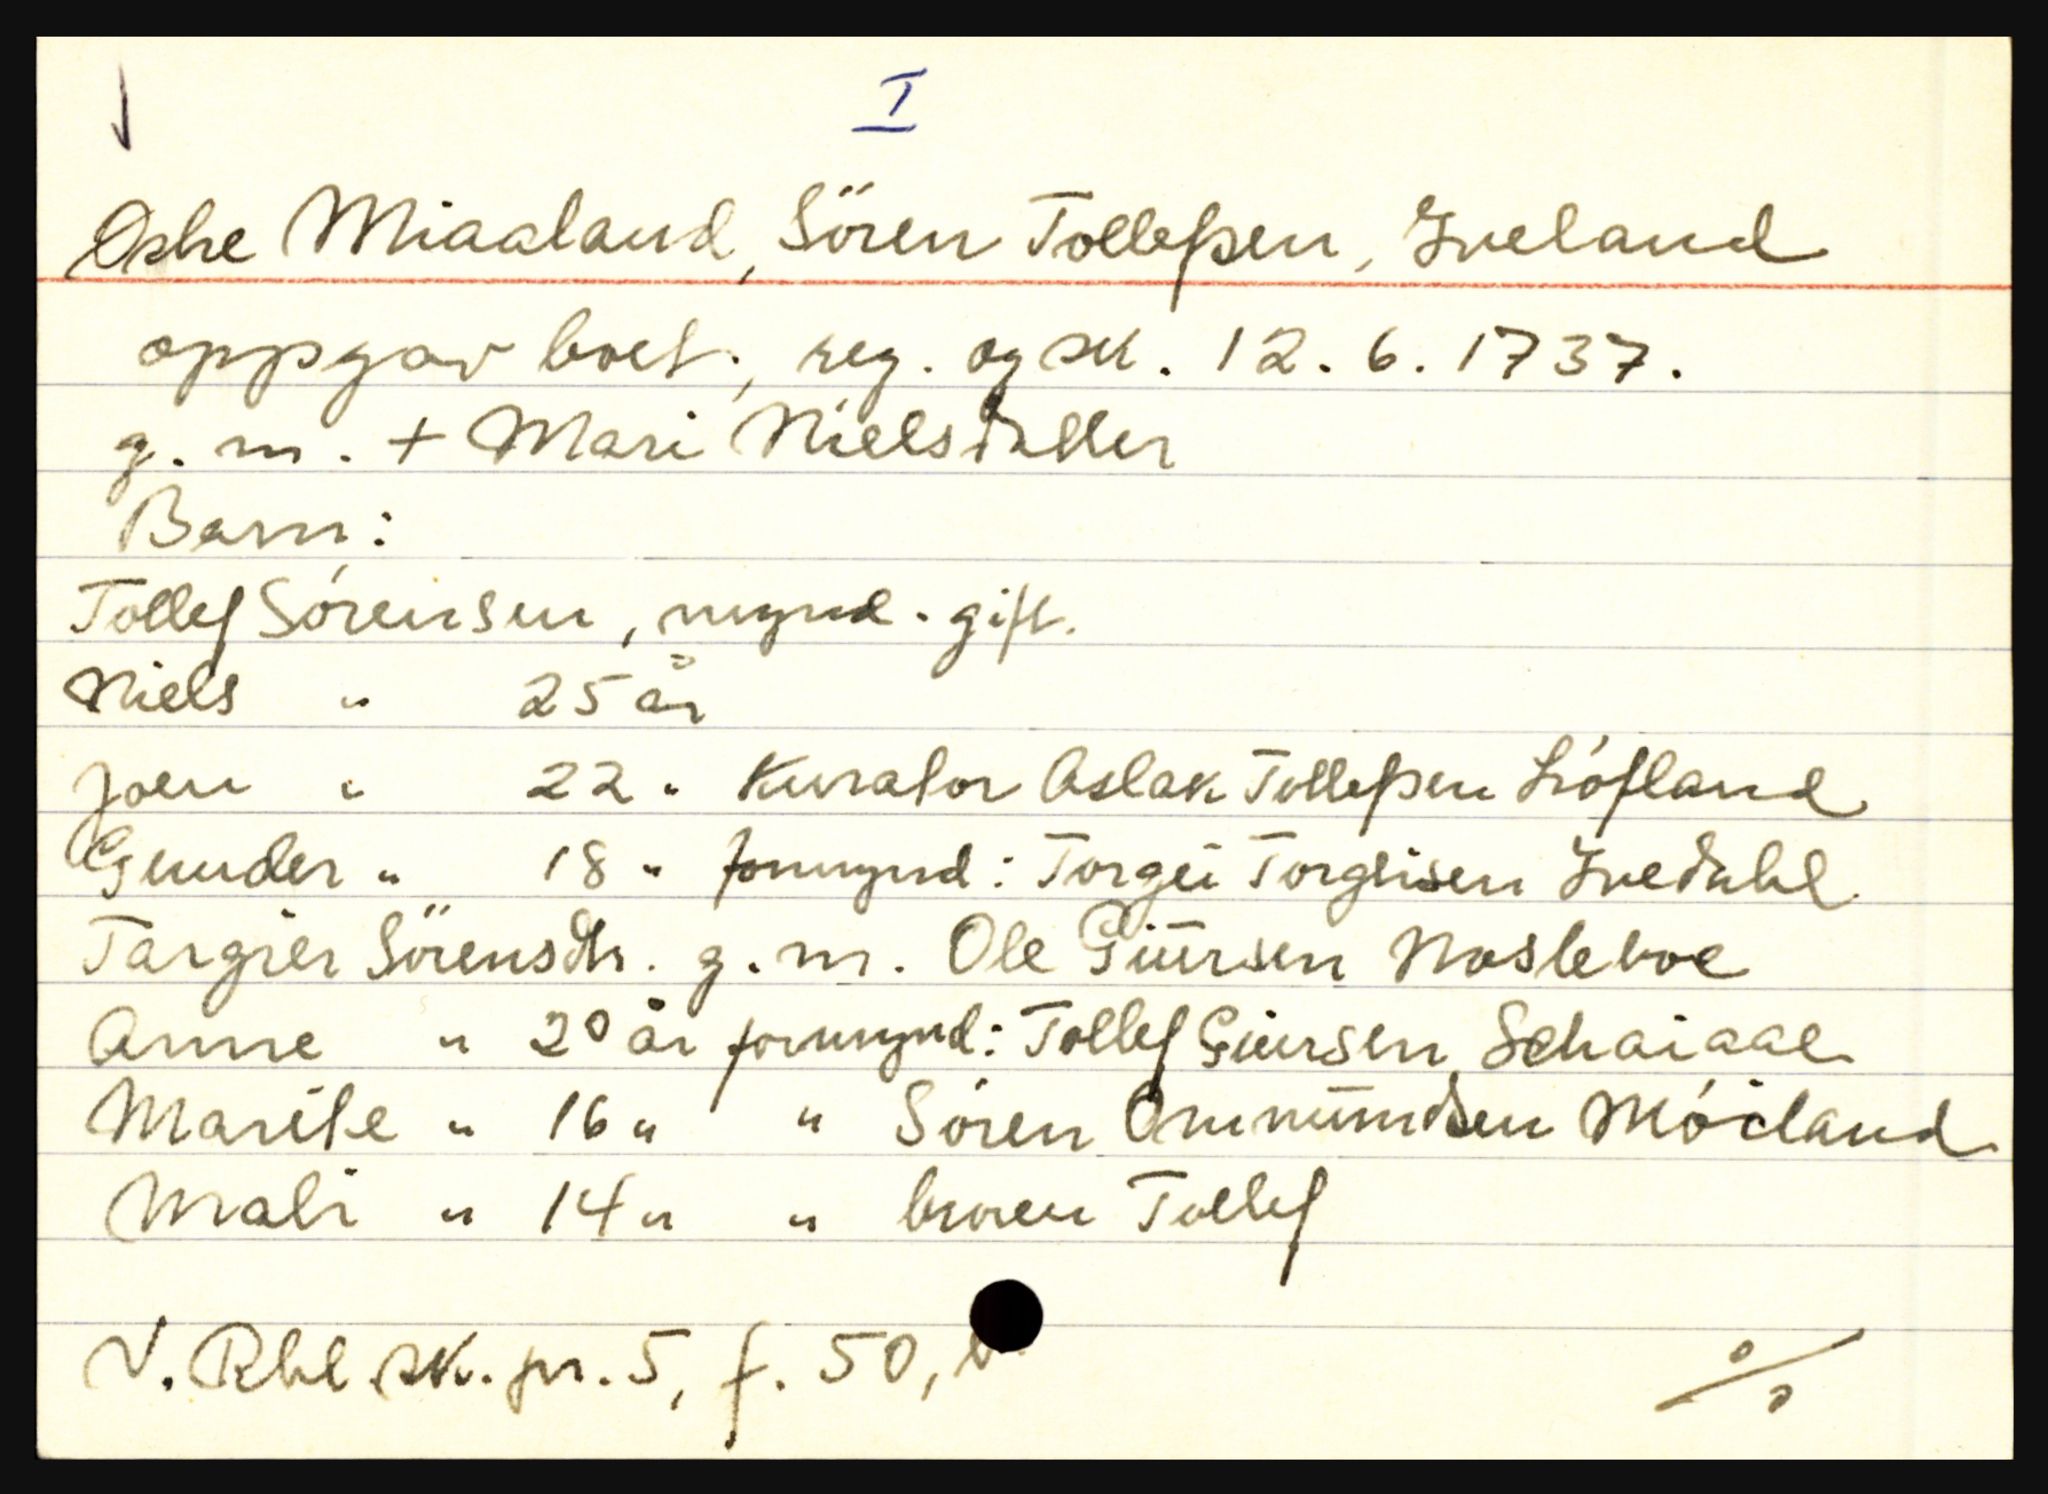 I
Øshe Miaaland, Sören Tolleßen, Iveland
oppgav boet, reg. og sk. 12. 6. 1737.
g. m. + Mari Nielsdatter
Barn:
Tollef Sórensen, mynd. gift.
Niels " 25 år
Joen " 22 " Kurator Aslak Tolleßen Liófland
Gunder " 18 " formynd: Torgei Torgeisen Ivedahl
Targier Sörensdtr. g. m. Ole Giŭrsen Nosleboe
Anne " 20 år formynd: Tollef Giursen Schaiaae
Marite " 16 " " Sóren Ommŭndsen Móiland
Mali " 14 " " broren Tollef
N. Rbl. sk. pr. 5, f. 50, b
%